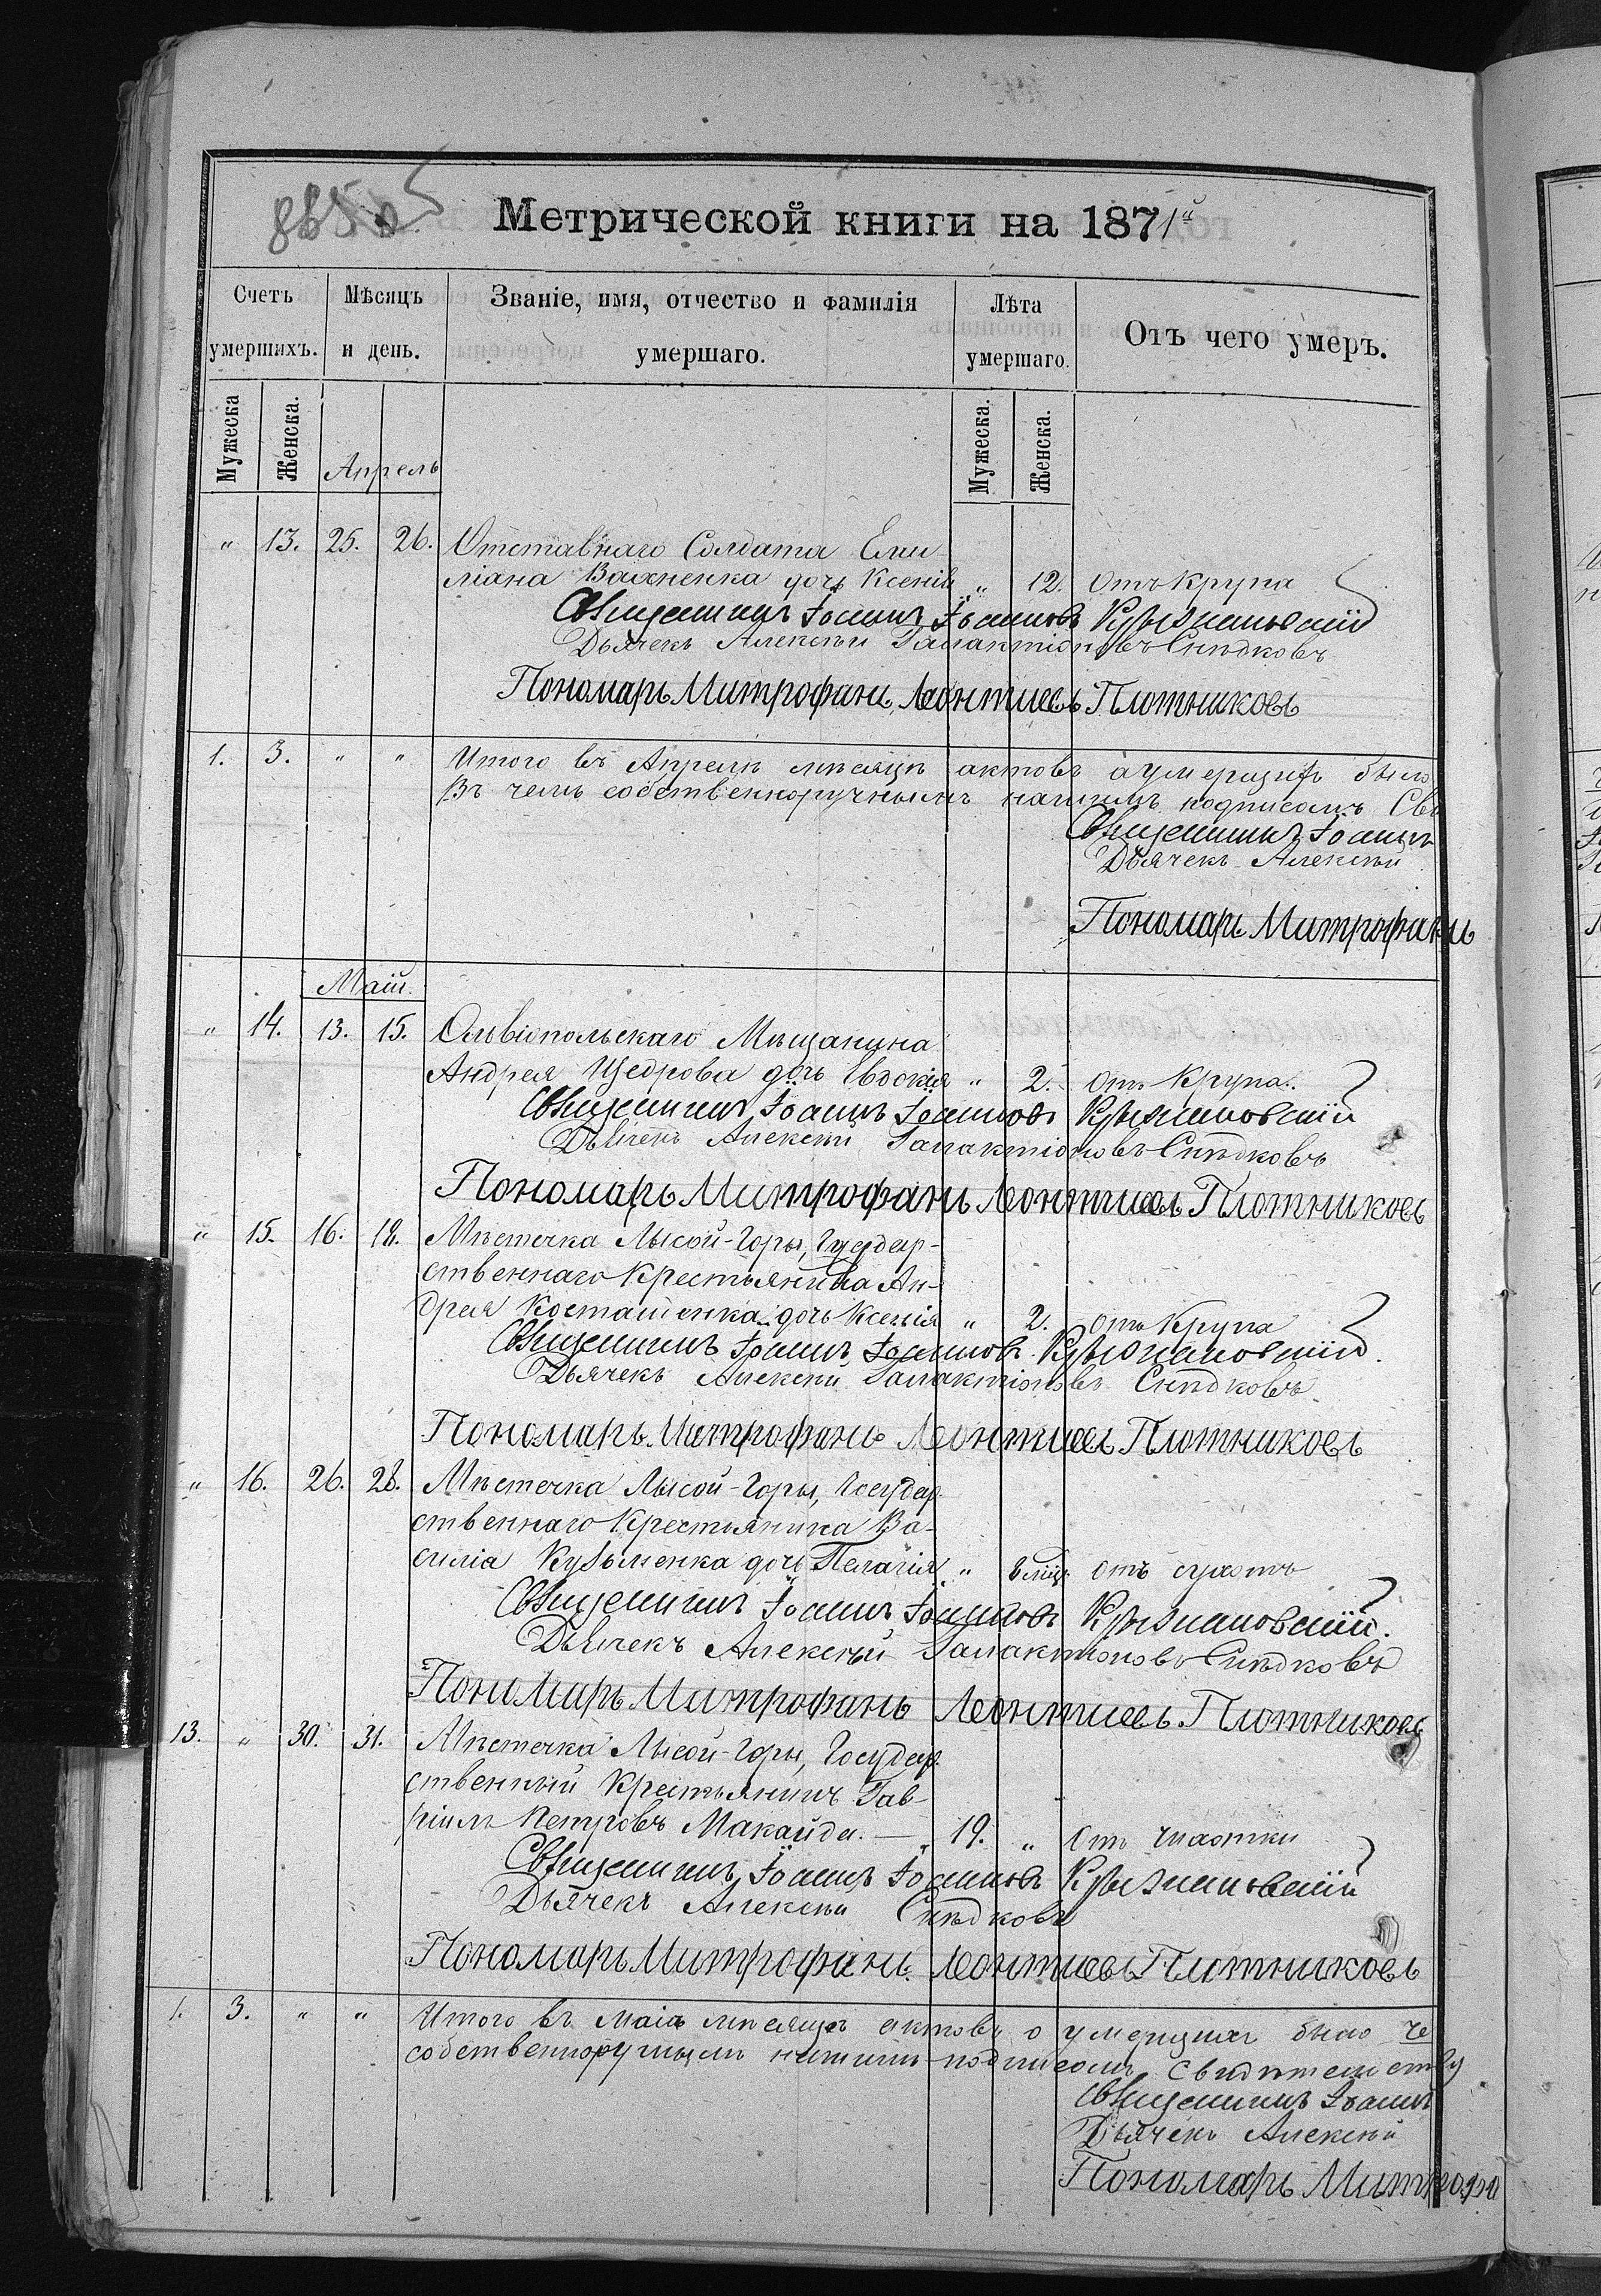 Метрической книги на 1871й
Счетъ умершихъ.
Мѣсяцъ и день.
Званіе, имя, отчество и фамилія умершаго.
Лѣта умершаго.
Отъ чего умеръ.
Мужеска Женска. Апрель Мужеска. Женска.
" 13. 25. 26. Отставнаго Солдата Еми-
ліана Вахненка дочь Ксенія " 12. Отъ крупа
Священникъ Іоаннъ Іоанновъ Крыжановскій
Дьячекъ Алексѣй Галактіоновъ Снѣдковъ
Пономарь Митрофанъ Леонтіевъ Плотниковъ
1. 3. " " Итого въ Апрелѣ мѣсяцѣ актовъ о умершихъ было
Въ чемъ собственноручнымъ нашимъ подписомъ Сви
Священникъ Іоаннъ
Дьячекъ Алексѣй
Пономарь Митрофанъ
Маій.
" 14. 13. 15. Ольвіопольскаго Мѣщанина
Андрея Щедрова дочь Евдокія " 2. Отъ Крупа.
Священникъ Іоаннъ Іоанновъ Крыжановскій
Дьячекъ Алексѣй Галактіоновъ Снѣдковъ
Пономарь Митрофанъ Леонтіевъ Плотниковъ
" 15. 16. 18. Мѣстечка Лысой-Горы, Государ-
ственнаго Крестьянина Ан-
дрея Косташенка дочь Ксенія " 2. Отъ Крупа
Священникъ Іоаннъ Іоанновъ Крыжановскій.
Дьячекъ Алексѣй Галактіоновъ Снѣдковъ
Пономарь Митрофанъ Леонтіевъ Плотниковъ
" 16. 26. 28. Мѣстечка Лысой-Горы, Государ-
ственнаго Крестьянина Ва-
силія Кузьменка дочь Пелагія " отъ сухотъ
Священникъ Іоаннъ Іоанновъ Крыжановскій.
Дьячекъ Алексѣй Галактіоновъ Снѣдковъ
Пономарь Митрофанъ Леонтіевъ Плотниковъ
13. " 30. 31. Мѣстечка Лысой-Горы, Государ-
ственный Крестьянинъ Гав-
ріилъ Петровъ Макайда. — 19. " Отъ чахотки
Священникъ Іоаннъ Іоанновъ Крыжановскій
Дьячекъ Алексѣй Снѣдковъ
Пономарь Митрофанъ Леонтіевъ Плотниковъ
1. 3. " " Итого въ Маіѣ мѣсяцѣ актовъ о умершихъ было Че
собственноручнымъ нашимъ подписомъ Свидѣтельству
Священникъ Іоаннъ
Дьячекъ Алексѣй
Пономарь Митрофа